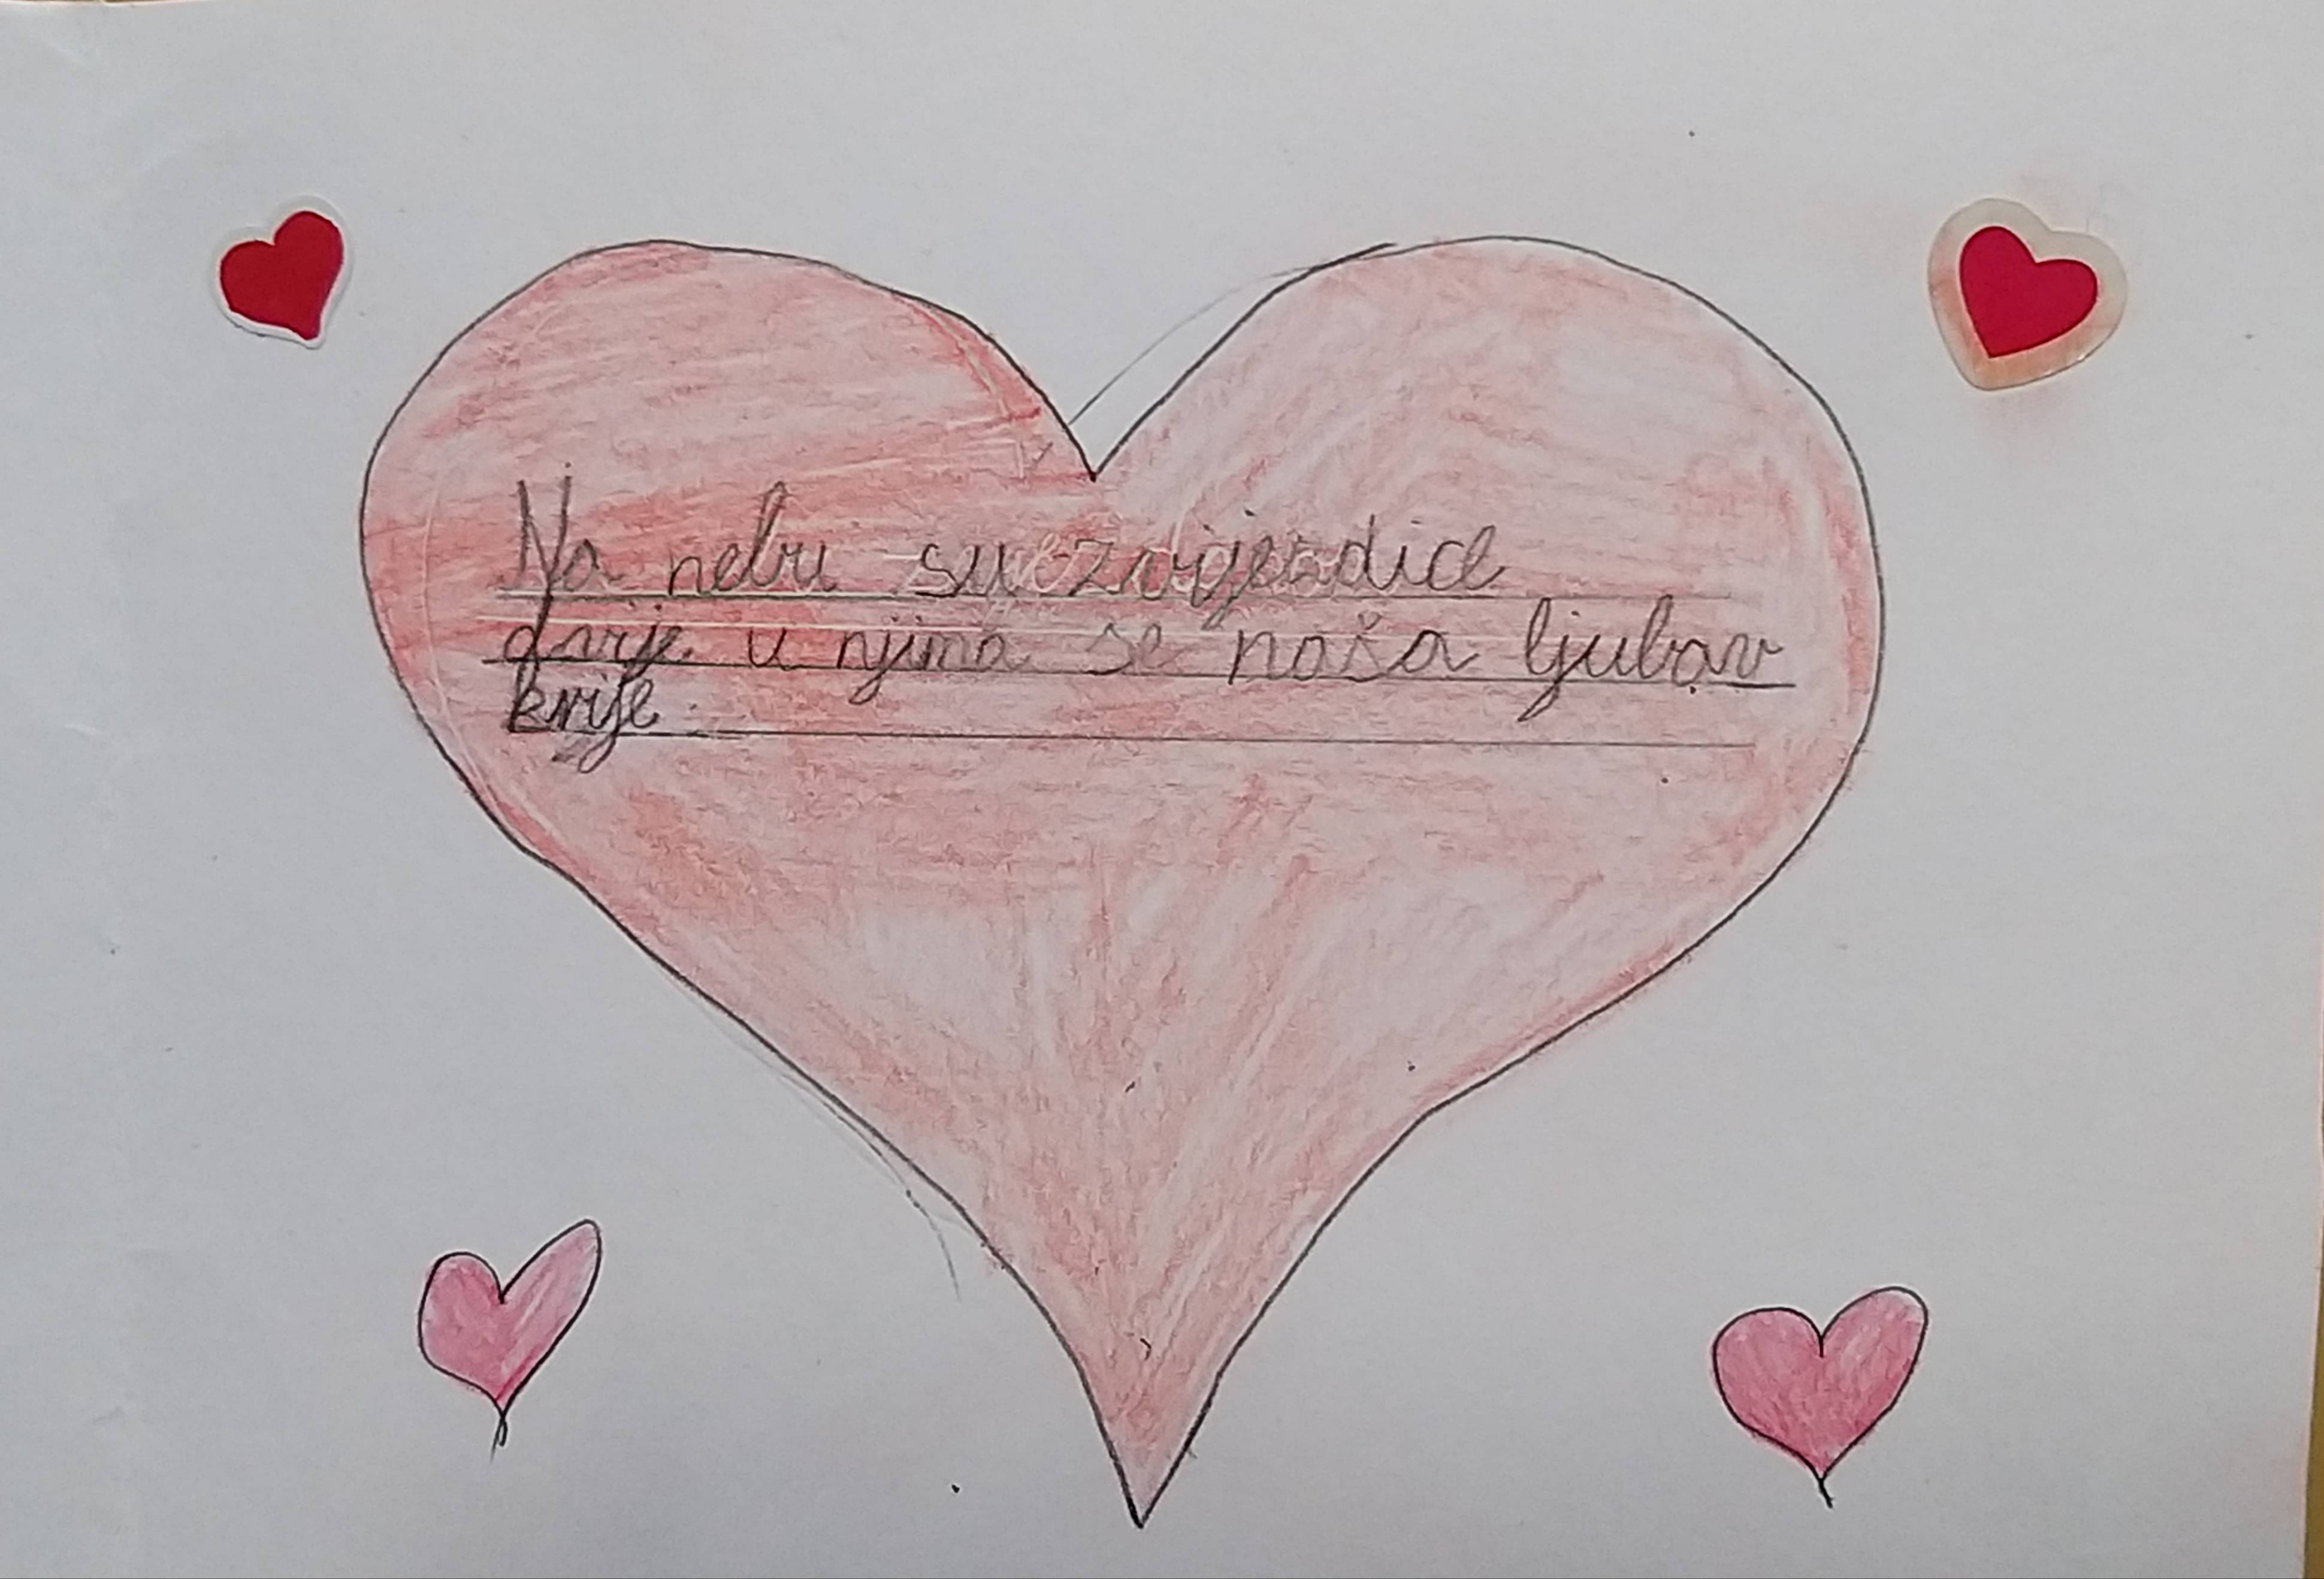 Na nebu su zvijezdice
dvije u njima se naša ljubav
krije.